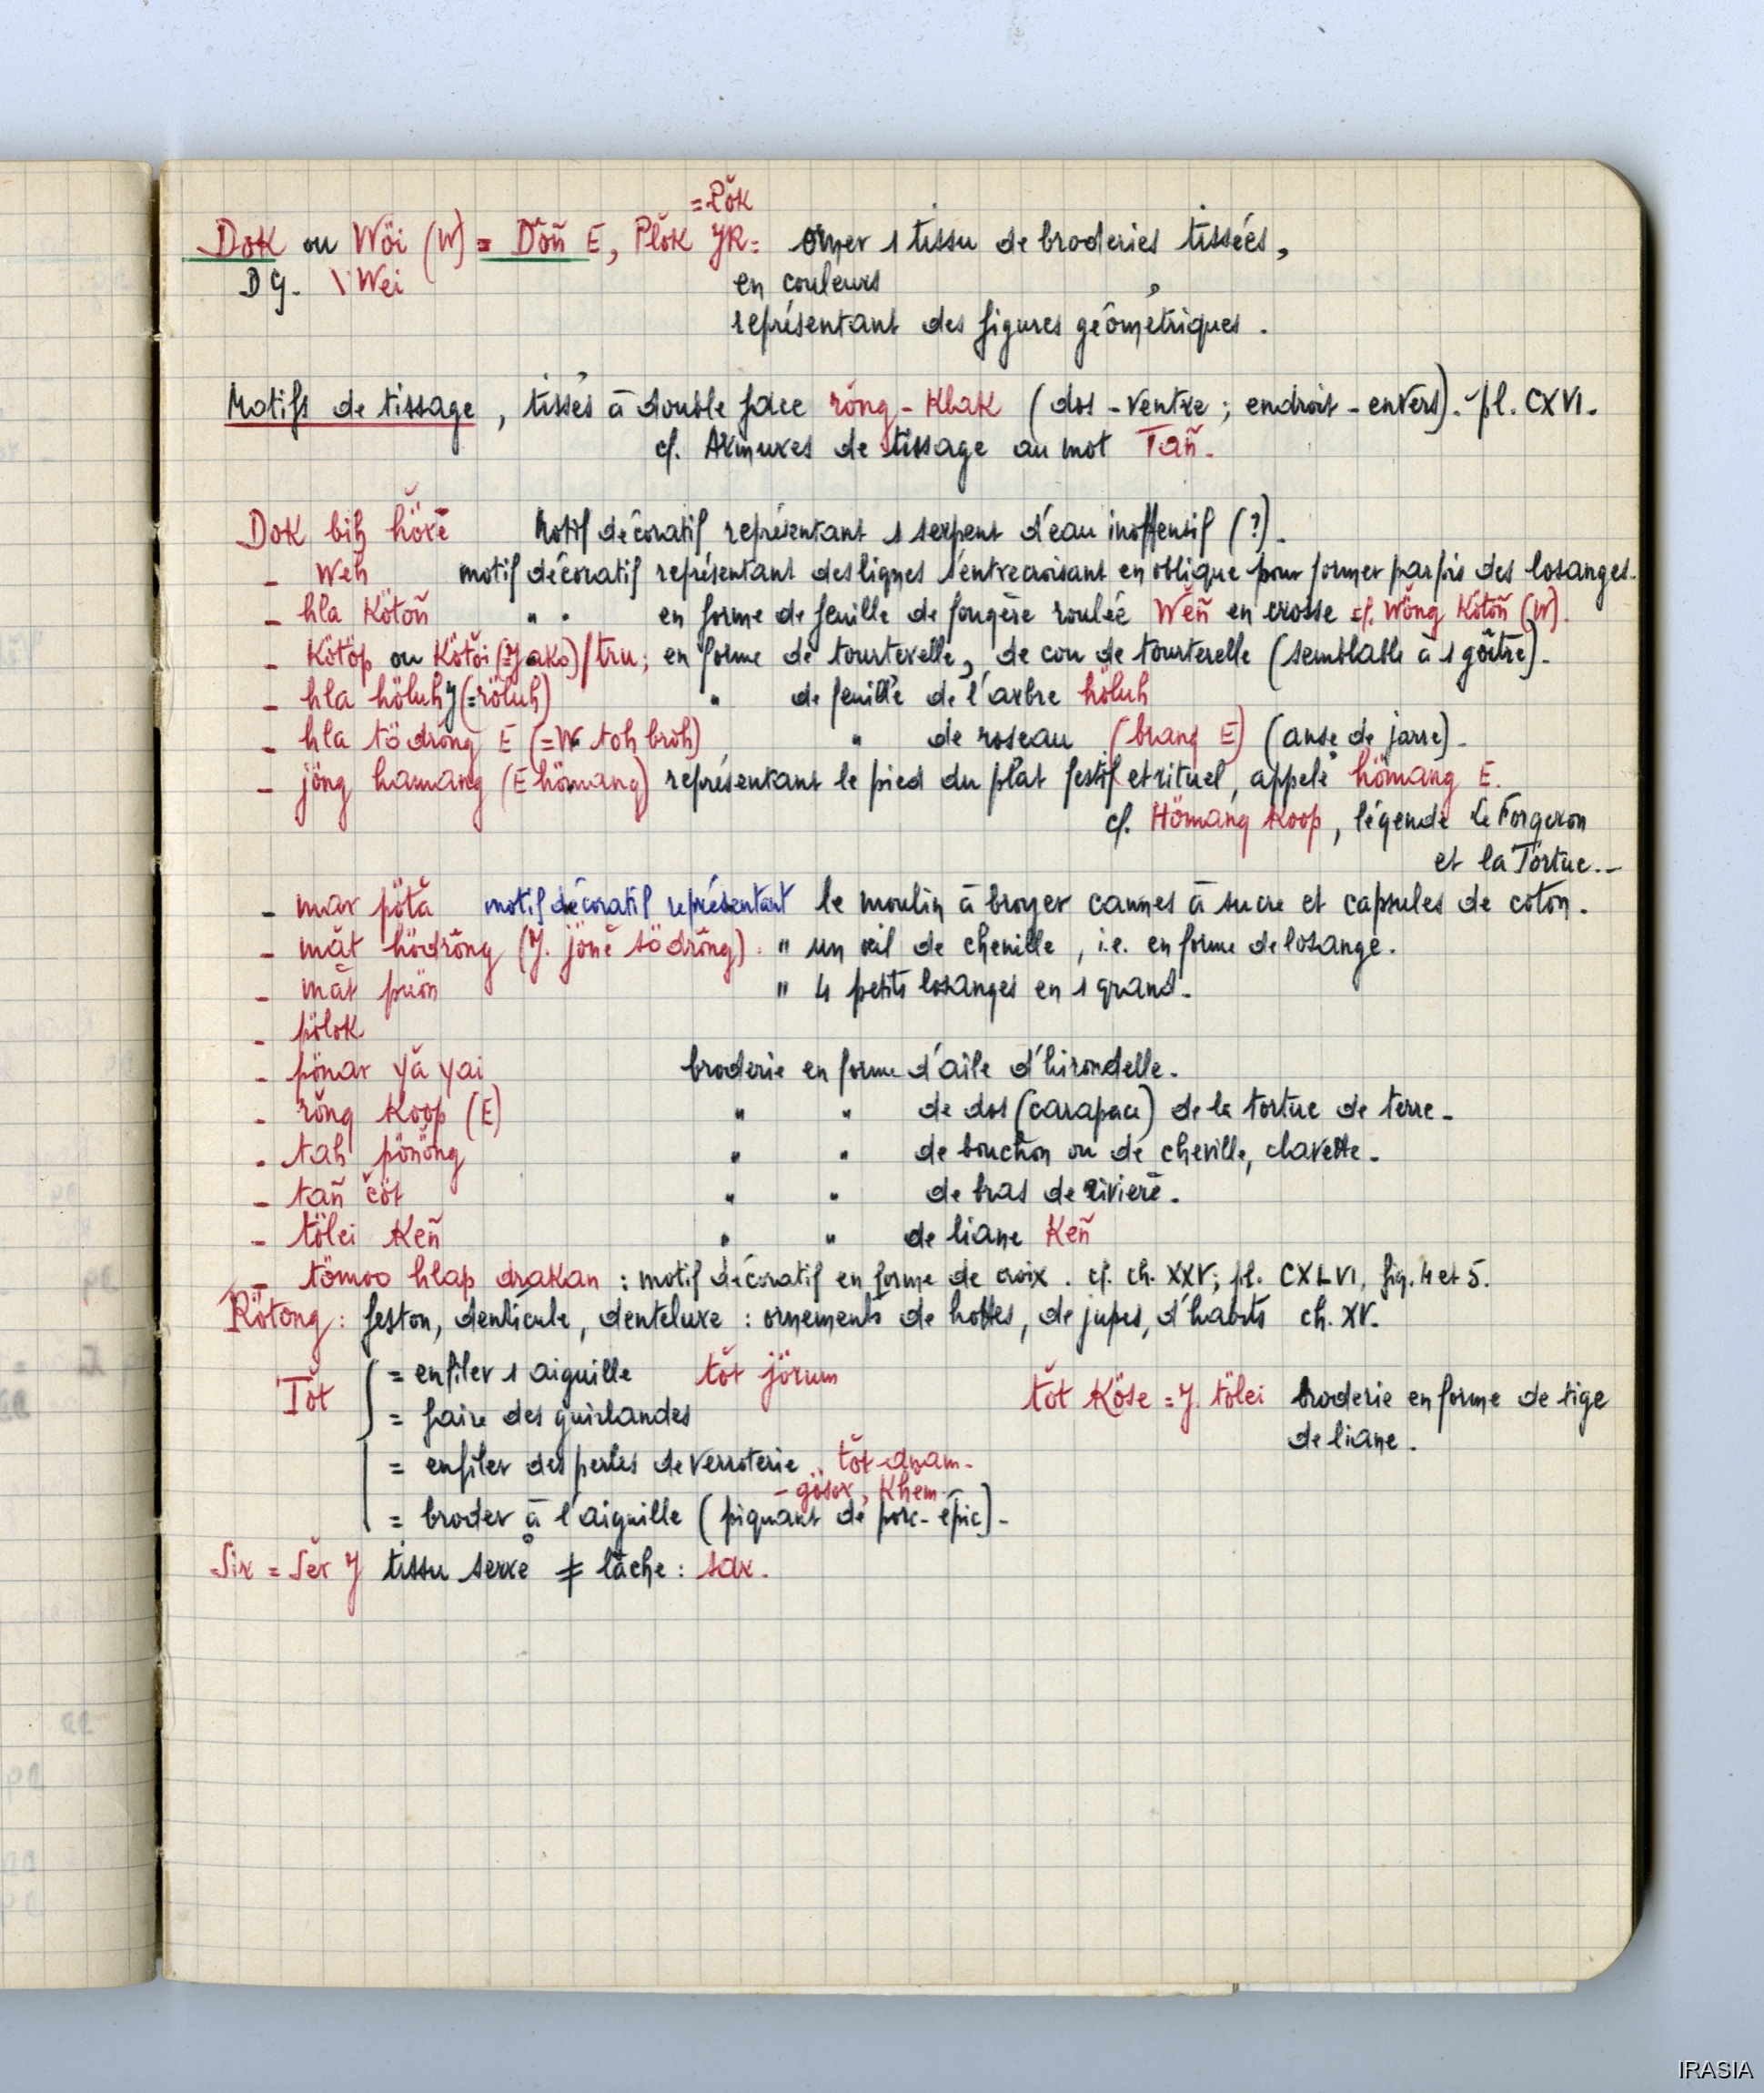 = Pŏk
Dok ou Wöi (W) = Dŏñ E, Plŏk JR = orner 1 tissu de broderies tissées,
DG. \ Wei en couleurs
représentant des figures géométriques.
Motifs de tissage, tissés à double face rŏng - Klak (dos - ventre ; endroit - envers). - pl. CXVI.
cf. Armures de tissage au mot Tañ.
Dok bih höre Motif décoratif représentant 1 serpent d'eau inoffensif (?).
- Weh motif décoratif représentant des lignes s'entrecroisant en oblique pour former parfois des losanges.
- hla Kötoñ " " en forme de feuille de fougère roulée Wĕñ en crosse cf. Wŏng Kötoñ (W).
- Kötŏp ou Kötŏi (=J ako)/tru; en forme de tourterelle, de cou de tourterelle (semblable à 1 goître).
- hla höluh J (=röluh) " de feuille de l'arbre höluh
- hla tödrong E (=W toh brŏh) " de roseau (brang E) (anse de jarre).
- jöng hamang (E hömang) représentant le pied du plat festif et rituel, appelé hömang E.
cf. Hömang Koop, légende Le Forgeron
et la Tortue. -
- mar pöta motif décoratif représentant le moulin à broyer cannes à sucre et capsules de coton.
- măt hödrŏng (J. jönĕ södrŏng). " un œil de chenille, i.e. en forme de losange.
- măt puön " 4 petits losanges en 1 grand.
- pölok
- pönar yă yai broderie en forme d'aile d'hirondelle.
- rŏng Koop (E) " " de dos (carapace) de la tortue de terre.
- tah pönŏng " " de bouchon ou de cheville, clavette.
- tañ čöt " " de bras de rivière.
- tölei Keñ " " de liane Keñ
- tömoo hlap drakan : motif décoratif en forme de croix. cf. ch. XXV; pl. CXLVI, fig. 4 et 5.
Rötong : feston, denticule, dentelure : ornements de hottes, de jupes, d'habits ch. XV.
Tŏt = enfiler 1 aiguille tŏt jörum
= faire des guirlandes
tŏt Köse = J. tölei broderie en forme de tige
de liane.
= enfiler des perles de verroterie. tŏt
- gösor, Khem
= broder à l'aiguille (piquant de porc-épic).
Sir = Sĕr J tissu serré ≠ lâche : sar.
IRASIA